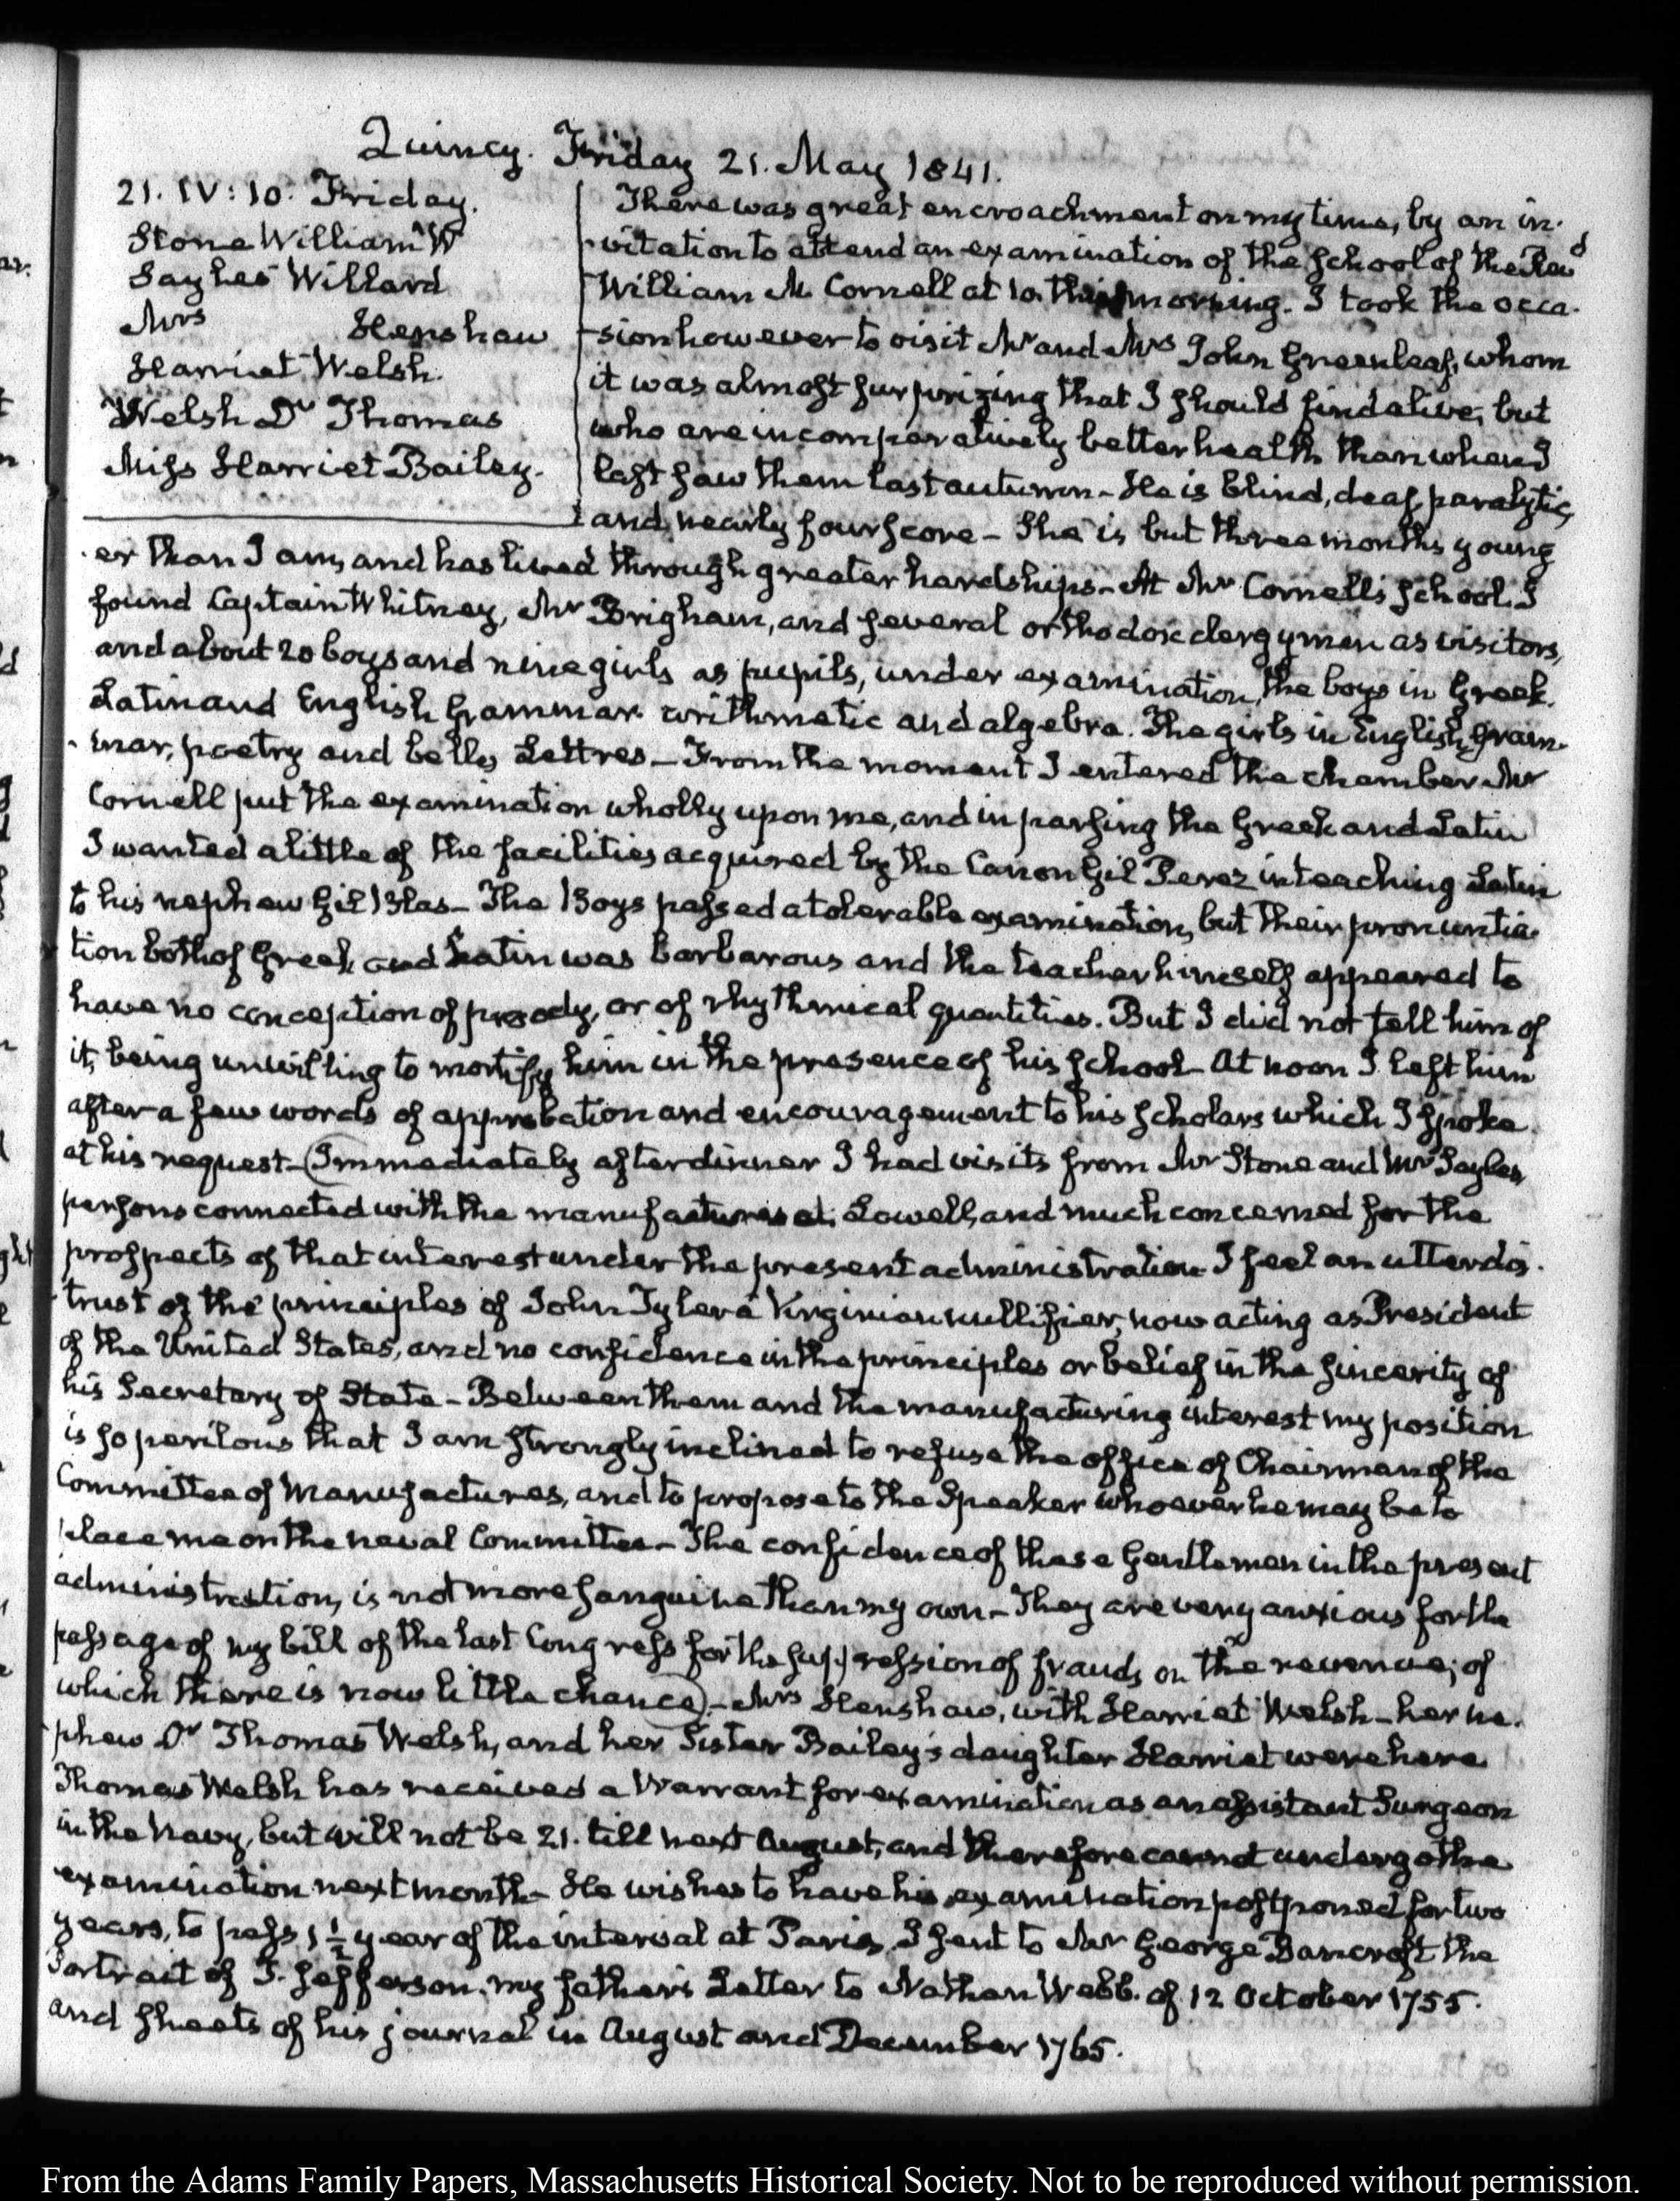 Quincy. Friday 21. May 1841.
21. IV: 10. Friday.
Stone William W
Sayles Willard
Mrs Henshaw
Harriet Welsh.
Welsh Dr Thomas
Miss Harriet Bailey.
There was great encroachment on my time, by an in-
vitation to attend an examination of the school of the Revd
William M Cornell at 10. this morning. I took the occa-
sion however to visit Mr and Mrs John Greenleaf, whom
it was almost surprizing that I should find alive, but
who are in comparatively better health than when I
last saw them last autumn - He is blind, deaf, paralytic,
and nearly fourscore - She is but three months young-
er than I am, and has lived through greater hardships - At Mr Cornell's school I
found Captain Whitney, Mr Brigham, and several orthodox clergymen as visitors,
and about 20 boys and nine girls as pupils, under examination, the boys in Greek.
Latin and English Grammar arithmetic and algebra. The girls in English, gram-
mar, poetry and belles Lettres - From the moment I entered the chamber Mr
Cornell put the examination wholly upon me, and in parsing the Greek and Latin
I wanted a little of the facilities acquired by the Canon Gil Perez in teaching Latin
to his nephew Gil Blas - The Boys passed a tolerable examination, but their pronuntia-
tion both of Greek and Latin was barbarous and the teacher himself appeared to
have no conception of prosody, or of rhythmical quantities. But I did not tell him of
it, being unwilling to mortify him in the presence of his school - At noon I left him
after a few words of approbation and encouragement to his scholars which I spoke
at his request - (Immediately after dinner I had visits from Mr Stone and Mr Sayles,
persons connected with the manufactures at Lowell, and much concerned for the
prospects of that interest under the present administration I feel an utter dis-
trust of the principles of John Tyler a Virginian nullifier, now acting as President
of the United States, and no confidence in the principles or belief in the sincerity of
his Secretary of State - Between them and the manufacturing interest my position
is so perilous that I am strongly inclined to refuse the office of Chairman of the
Committee of Manufactures, and to propose to the Speaker whoever he may be to
place me on the naval Committee - The confidence of these Gentlemen in the present
administration, is not more sanguine than my own - They are very anxious for the
passage of my bill of the last Congress for the suppression of frauds on the revenue; of
which there is now little chance) - Mrs Henshaw, with Harriet Welsh - her ne-
phew Dr Thomas Welsh, and her Sister Bailey's daughter Harriet were here
Thomas Welsh has received a Warrant for examination as an assistant Surgeon
in the Navy, but will not be 21. till next August, and therefore cannot undergo the
examination next month - He wishes to have his examination postponed for two
years, to pass 1 1/2 year of the interval at Paris. I sent to Mr George Bancroft the
Portrait of T. Jefferson. my father's Letter to Nathan Webb. of 12 October 1755.
and sheets of his journal in August and December 1765.
From the Adams Family Papers, Massachusetts Historical Society. Not to be reproduced without permission.